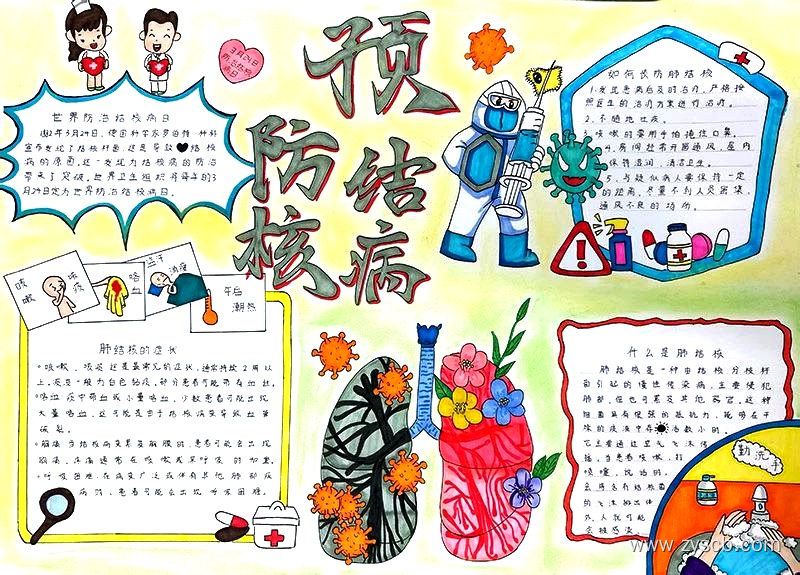 预
防 结
核 病
3月24日
防治结核
病日
世界防治结核病日
1882年3月24日,德国科学家罗伯特·科赫
宣布发现了结核杆菌,这是导致 结核
病的原因,这一发现为结核病的防治
带来了突破,世界卫生组织将每年的3
月24日定为世界防治结核病日。
如何预防肺结核
1.发现患病后及时治疗,严格按
照医生的治疗方案进行治疗。
2.不随地吐痰。
3.咳嗽的需用手帕掩住口鼻。
4.房间经常开窗通风,屋内
保持洁润,清洁卫生。
5.与疑似病人要保持一定
的距离,尽量不到人员密集,
通风不良的场所。
咳嗽
咳痰
咯血
盗汗
午后
潮热
肺结核的症状
咳嗽、咳痰:这是最常见的症状,通常持续2周以
上,痰液一般为白色黏痰,部分患者可能带有血丝。
咯血:痰中带血或小量咯血,少数患者可能出现
大量咯血,这可能是由于结核病变导致血管
破裂。
胸痛:当结核病变累及胸膜时,患者可能会出现
胸痛,疼痛通常在咳嗽或深呼吸时加重。
呼吸困难:在病变广泛或伴有其他肺部疾
病时,患者可能会出现呼吸困难。
什么是肺结核
肺结核是一种由结核分枝杆
菌引起的慢性传染病,主要侵犯
肺部,但也可累及其他器官,这种
细菌具有很强的抵抗力,能够在干
燥的痰液中存活数小时。
它主要通过空气飞沫传
播,当患者咳嗽、打
喷嚏、说话时,
会将含有结核菌
的飞沫排出体
外,人就可能
会被感染。
勤洗手
www.zyscb.com